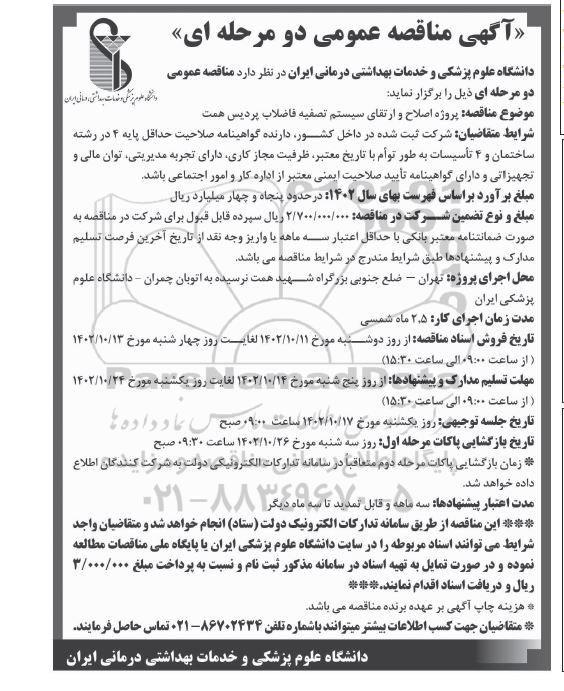 «آگهی مناقصه عمومی دو مرحله ای»
دانشگاه علوم پزشکی و خدمات بهداشتی، درمانی ایران
دانشگاه علوم پزشکی و خدمات بهداشتی درمانی ایران در نظر دارد مناقصه عمومی
دو مرحله ای ذیل را برگزار نماید:
موضوع مناقصه: پروژه اصلاح و ارتقای سیستم تصفیه فاضلاب پردیس همت
شرایط متقاضیان: شرکت ثبت شده در داخل کشـــور، دارنده گواهینامه صلاحیت حداقل پایه ۴ در رشته
ساختمان و ۴ تأسیسات به طور توأم با تاریخ معتبر، ظرفیت مجاز کاری، دارای تجربه مدیریتی، توان مالی و
تجهیزاتی و دارای گواهینامه تأیید صلاحیت ایمنی معتبر از اداره کار و امور اجتماعی باشد.
مبلغ برآورد براساس فهرست بهای سال ۱۴۰۲: در حدود پنجاه و چهار میلیارد ریال
مبلغ و نوع تضمین شـــرکت در مناقصه: ۲/۷۰۰/۰۰۰/۰۰۰ ریال سپرده قابل قبول برای شرکت در مناقصه به
صورت ضمانتنامه معتبر بانکی با حداقل اعتبار ســـه ماهه یا واریز وجه نقد از تاریخ آخرین فرصت تسلیم
مدارک و پیشنهادها طبق شرایط مندرج در شرایط مناقصه می باشد.
محل اجرای پروژه: تهران – ضلع جنوبی بزرگراه شـــهید همت نرسیده به اتوبان چمران – دانشگاه علوم
پزشکی ایران
مدت زمان اجرای کار: ۲،۵ ماه شمسی
تاریخ فروش اسناد مناقصه: از روز دوشـــنبه مورخ ۱۴۰۲/۱۰/۱۱ لغایـــت روز چهار شنبه مورخ ۱۴۰۲/۱۰/۱۳
( از ساعت ۰۹:۰۰ الی ساعت ۱۵:۳۰)
مهلت تسلیم مدارک و پیشنهادها: از روز پنج شنبه مورخ ۱۴۰۲/۱۰/۱۴ لغایت روز یکشنبه مورخ ۱۴۰۲/۱۰/۲۴
( از ساعت ۰۹:۰۰ الی ساعت ۱۵:۳۰)
تاریخ جلسه توجیهی: روز یکشنبه مورخ ۱۴۰۲/۱۰/۱۷ ساعت ۰۹:۰۰ صبح
تاریخ بازگشایی پاکات مرحله اول: روز سه شنبه مورخ ۱۴۰۲/۱۰/۲۶ ساعت ۰۹:۳۰ صبح
* زمان بازگشایی پاکات مرحله دوم متعاقبا در سامانه تدارکات الکترونیکی دولت به شرکت کنندگان اطلاع
داده خواهد شد.
مدت اعتبار پیشنهادها: سه ماهه و قابل تمدید تا سه ماه دیگر
*** این مناقصه از طریق سامانه تدارکات الکترونیک دولت (ستاد) انجام خواهد شد و متقاضیان واجد
شرایط می توانند اسناد مربوطه را در سایت دانشگاه علوم پزشکی ایران یا پایگاه ملی مناقصات مطالعه
نموده و در صورت تمایل به تهیه اسناد در سامانه مذکور ثبت نام و نسبت به پرداخت مبلغ ۳/۰۰۰/۰۰۰
ریال و دریافت اسناد اقدام نمایند.***
* هزینه چاپ آگهی بر عهده برنده مناقصه می باشد.
* متقاضیان جهت کسب اطلاعات بیشتر میتوانند باشماره تلفن ۸۶۷۰۲۴۳۴-۰۲۱ تماس حاصل فرمایند.
دانشگاه علوم پزشکی و خدمات بهداشتی درمانی ایران
۰۲۱-۸۸۳۴۹۶۷۰-۵